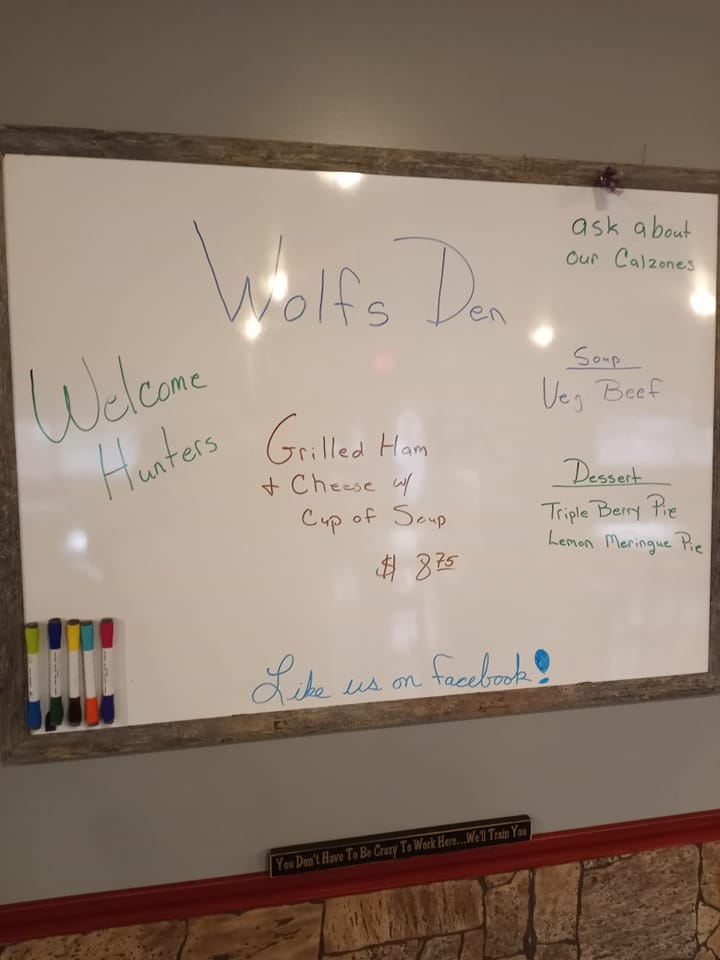 Wolfs Den
Welcome
Hunters
Grilled Ham
+ Cheese w/
Cup of Soup
$ 8.75
ask about
our Calzones
Soup
Veg Beef
Dessert
Triple Berry Pie
Lemon Meringue Pie
Like us on facebook!
You Don't Have To Be Crazy To Work Here...We'll Train You